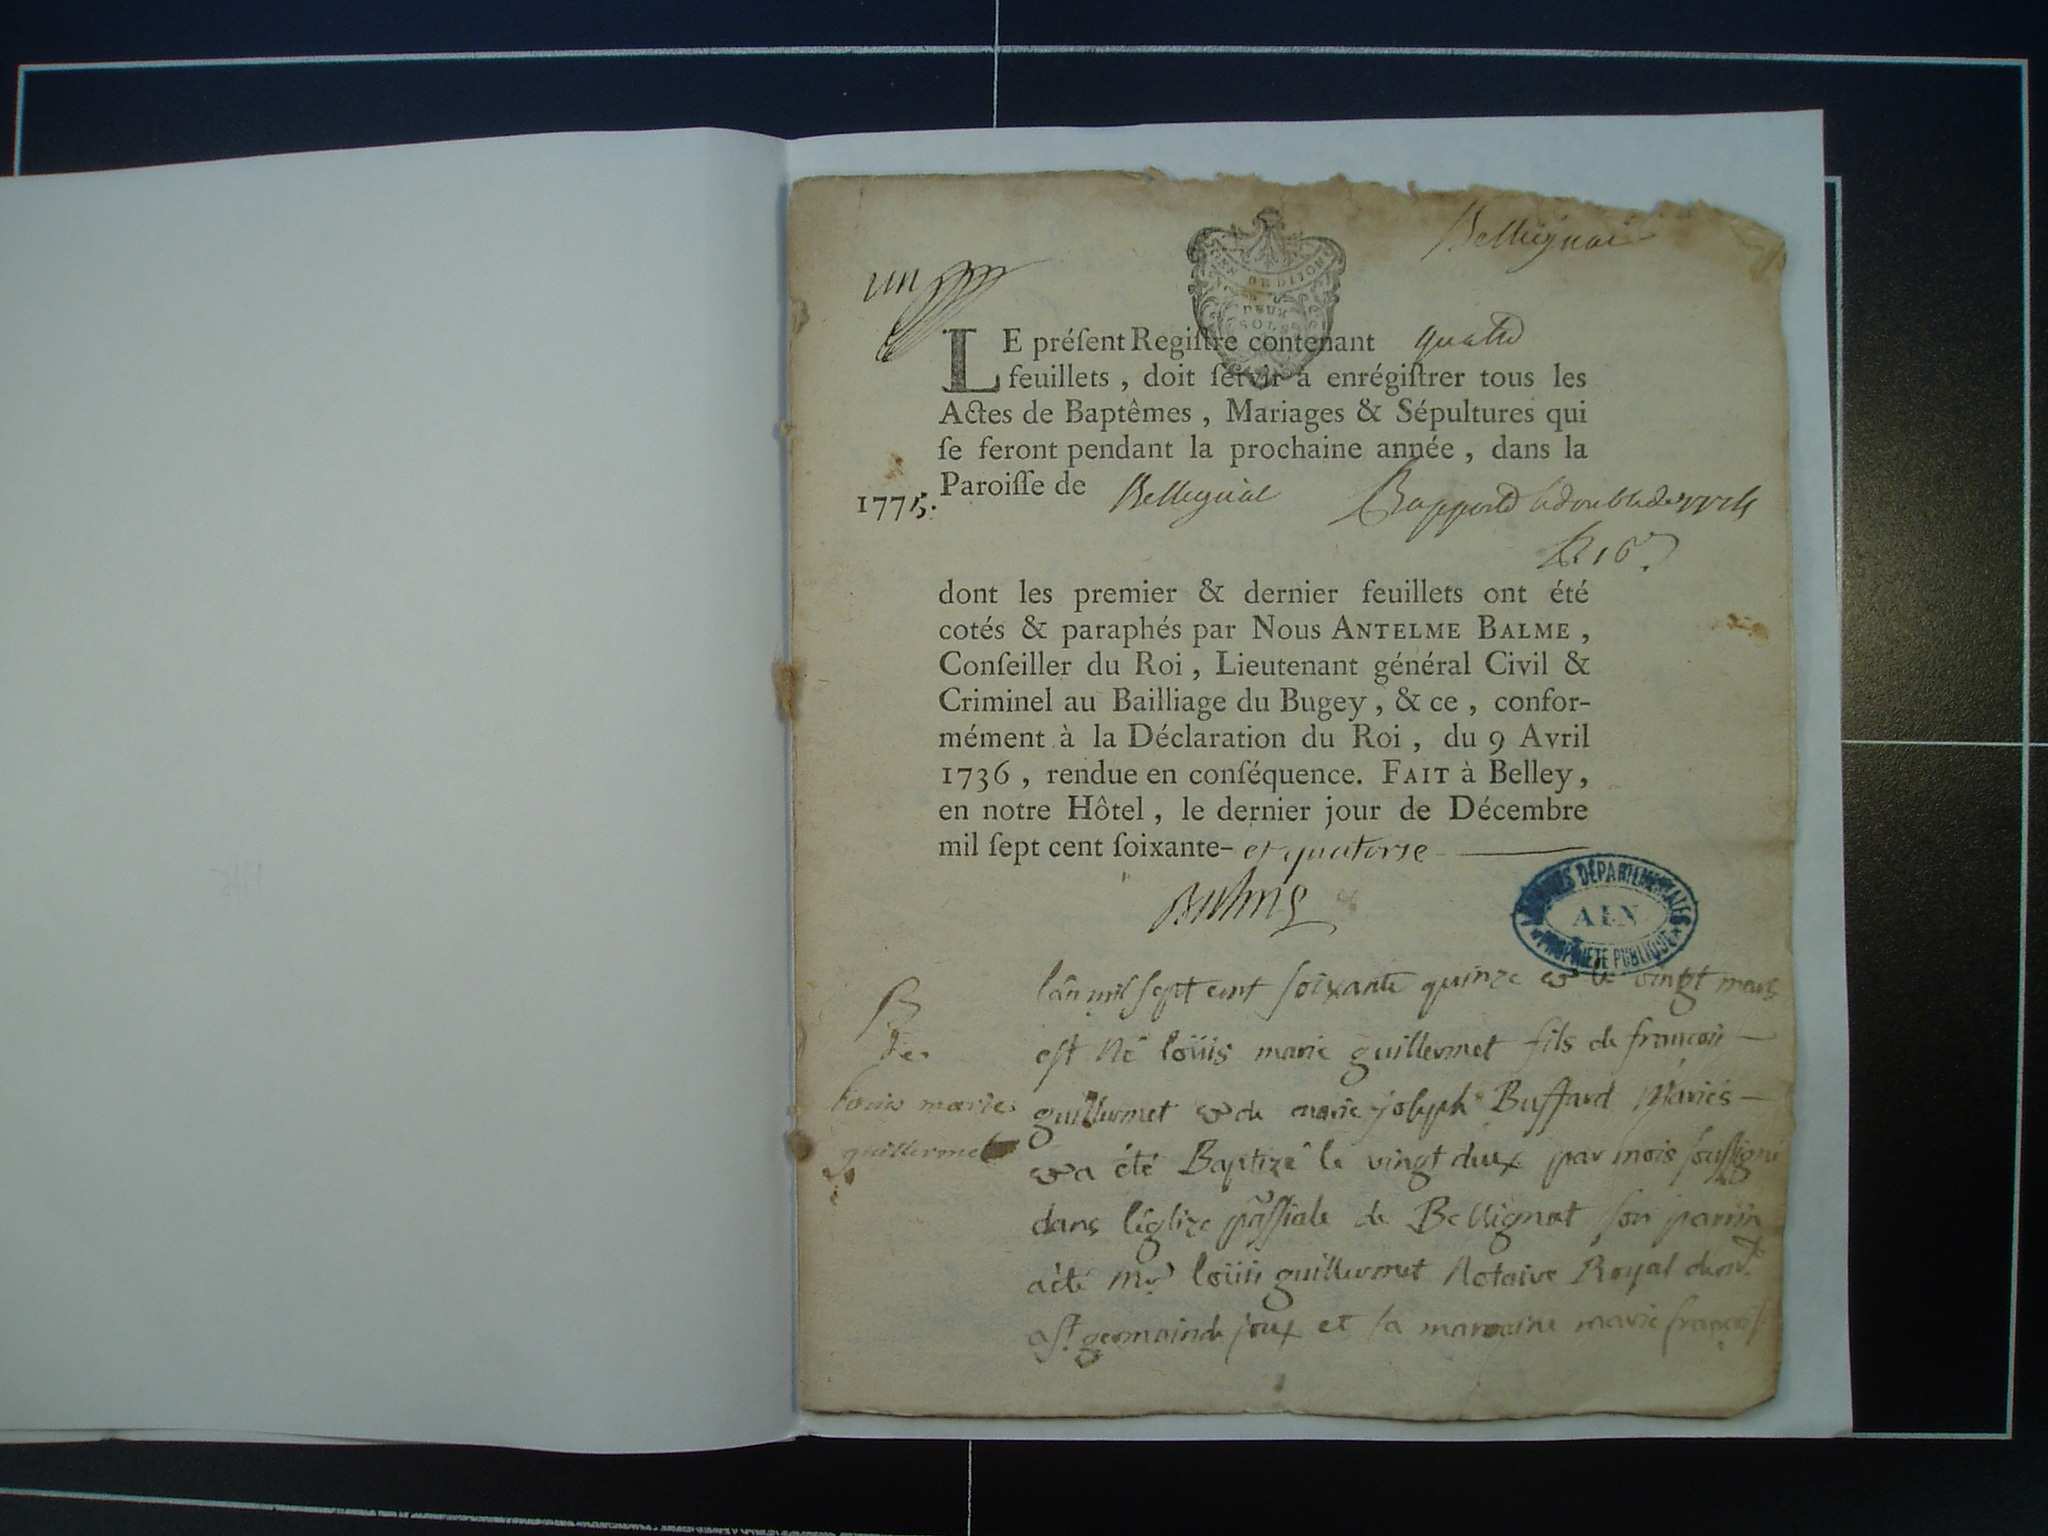 Bellignat
un
GEN DE DIJON
DEUX
SOLS
LE préſent Regiſtre contenant quatre
feuillets, doit ſervir à enrégiſtrer tous les
Actes de Baptêmes, Mariages & Sépultures qui
ſe feront pendant la prochaine année, dans la
Paroiſſe de Bellignat Rapporté le double de
1775.
dont les premier & dernier feuillets ont été
cotés & paraphés par Nous ANTELME BALME,
Conſeiller du Roi, Lieutenant général Civil &
Criminel au Bailliage du Bugey, & ce, confor-
mément à la Déclaration du Roi, du 9 Avril
1736, rendue en conſéquence. FAIT à Belley,
en notre Hôtel, le dernier jour de Décembre
mil ſept cent ſoixante- et quatorse
Balme
ARCHIVES DÉPARTEMENTALES
AIN
PROPRIÉTÉ PUBLIQUE
B
de
louis marie
guillermet
lan mil sept cent soixante quinze et le vingt mars
est né loüis marie guillermet fils de françois
guillermet et de marie joseph Buffard Mariés
et a été Baptizé le vingt deux par mois soussigné
dans léglize passiale de Bellignat son parrin
a été Mr. loüis guillermet Notaire Royal demt.
a St. germain de joux et sa marraine marie